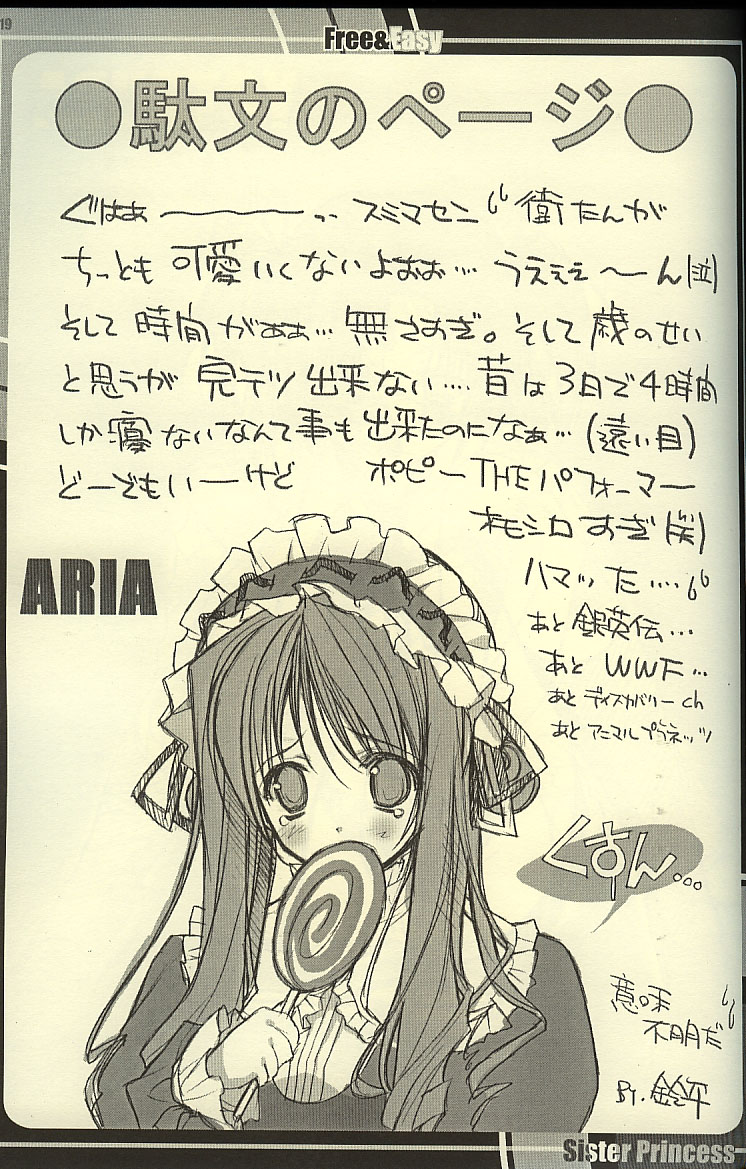 19
Free&Easy
●駄文のページ●
ぐはぁ〜〜〜っ スミマセン 衛たんが
ちっとも可愛いくないよおぉ… うえぇぇ〜ん(泣)
そして 時間がぁぁ… 無さすぎ。そして歳のせい
と思うが 完テツ出来ない…. 昔は3日で4時間
しか寝ないなんて事も出来たのになぁ…(遠い目)
どーでもいーけど ポピーTHEパフォーマー
オモシロすぎ(笑)
ハマった….
あと 銀英伝…
あと WWF…
あと ディスカバリーch
あと アニマルプラネッツ
ARIA
くすん…
意味
不明だ
By. 鈴平
Sister Princess